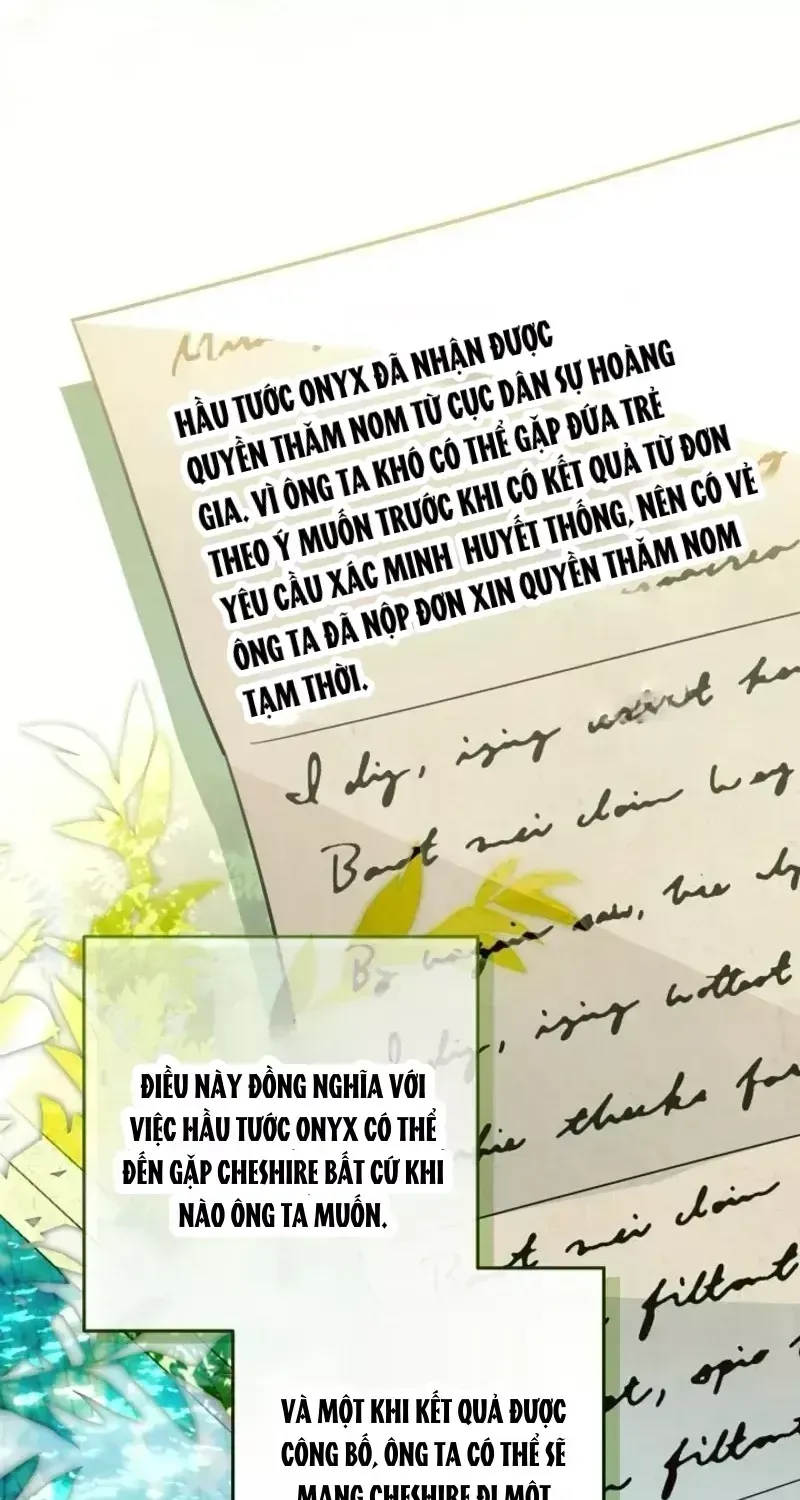 HẦU TƯỚC ONYX ĐÃ NHẬN ĐƯỢC
QUYỀN THĂM NOM TỪ CỤC DÂN SỰ HOÀNG
GIA. VÌ ÔNG TA KHÓ CÓ THỂ GẶP ĐỨA TRẺ
THEO Ý MUỐN TRƯỚC KHI CÓ KẾT QUẢ TỪ ĐƠN
YÊU CẦU XÁC MINH HUYẾT THỐNG, NÊN CÓ VẺ
ÔNG TA ĐÃ NỘP ĐƠN XIN QUYỀN THĂM NOM
TẠM THỜI.
I dig, izing
Barot mei cloim
saw,
I dig, izing wottast
theeks for
Barot mei cloim
filtant
spio
filtant
ĐIỀU NÀY ĐỒNG NGHĨA VỚI
VIỆC HẦU TƯỚC ONYX CÓ THỂ
ĐẾN GẶP CHESHIRE BẤT CỨ KHI
NÀO ÔNG TA MUỐN.
VÀ MỘT KHI KẾT QUẢ ĐƯỢC
CÔNG BỐ, ÔNG TA CÓ THỂ SẼ
MANG CHESHIRE ĐI MỘT